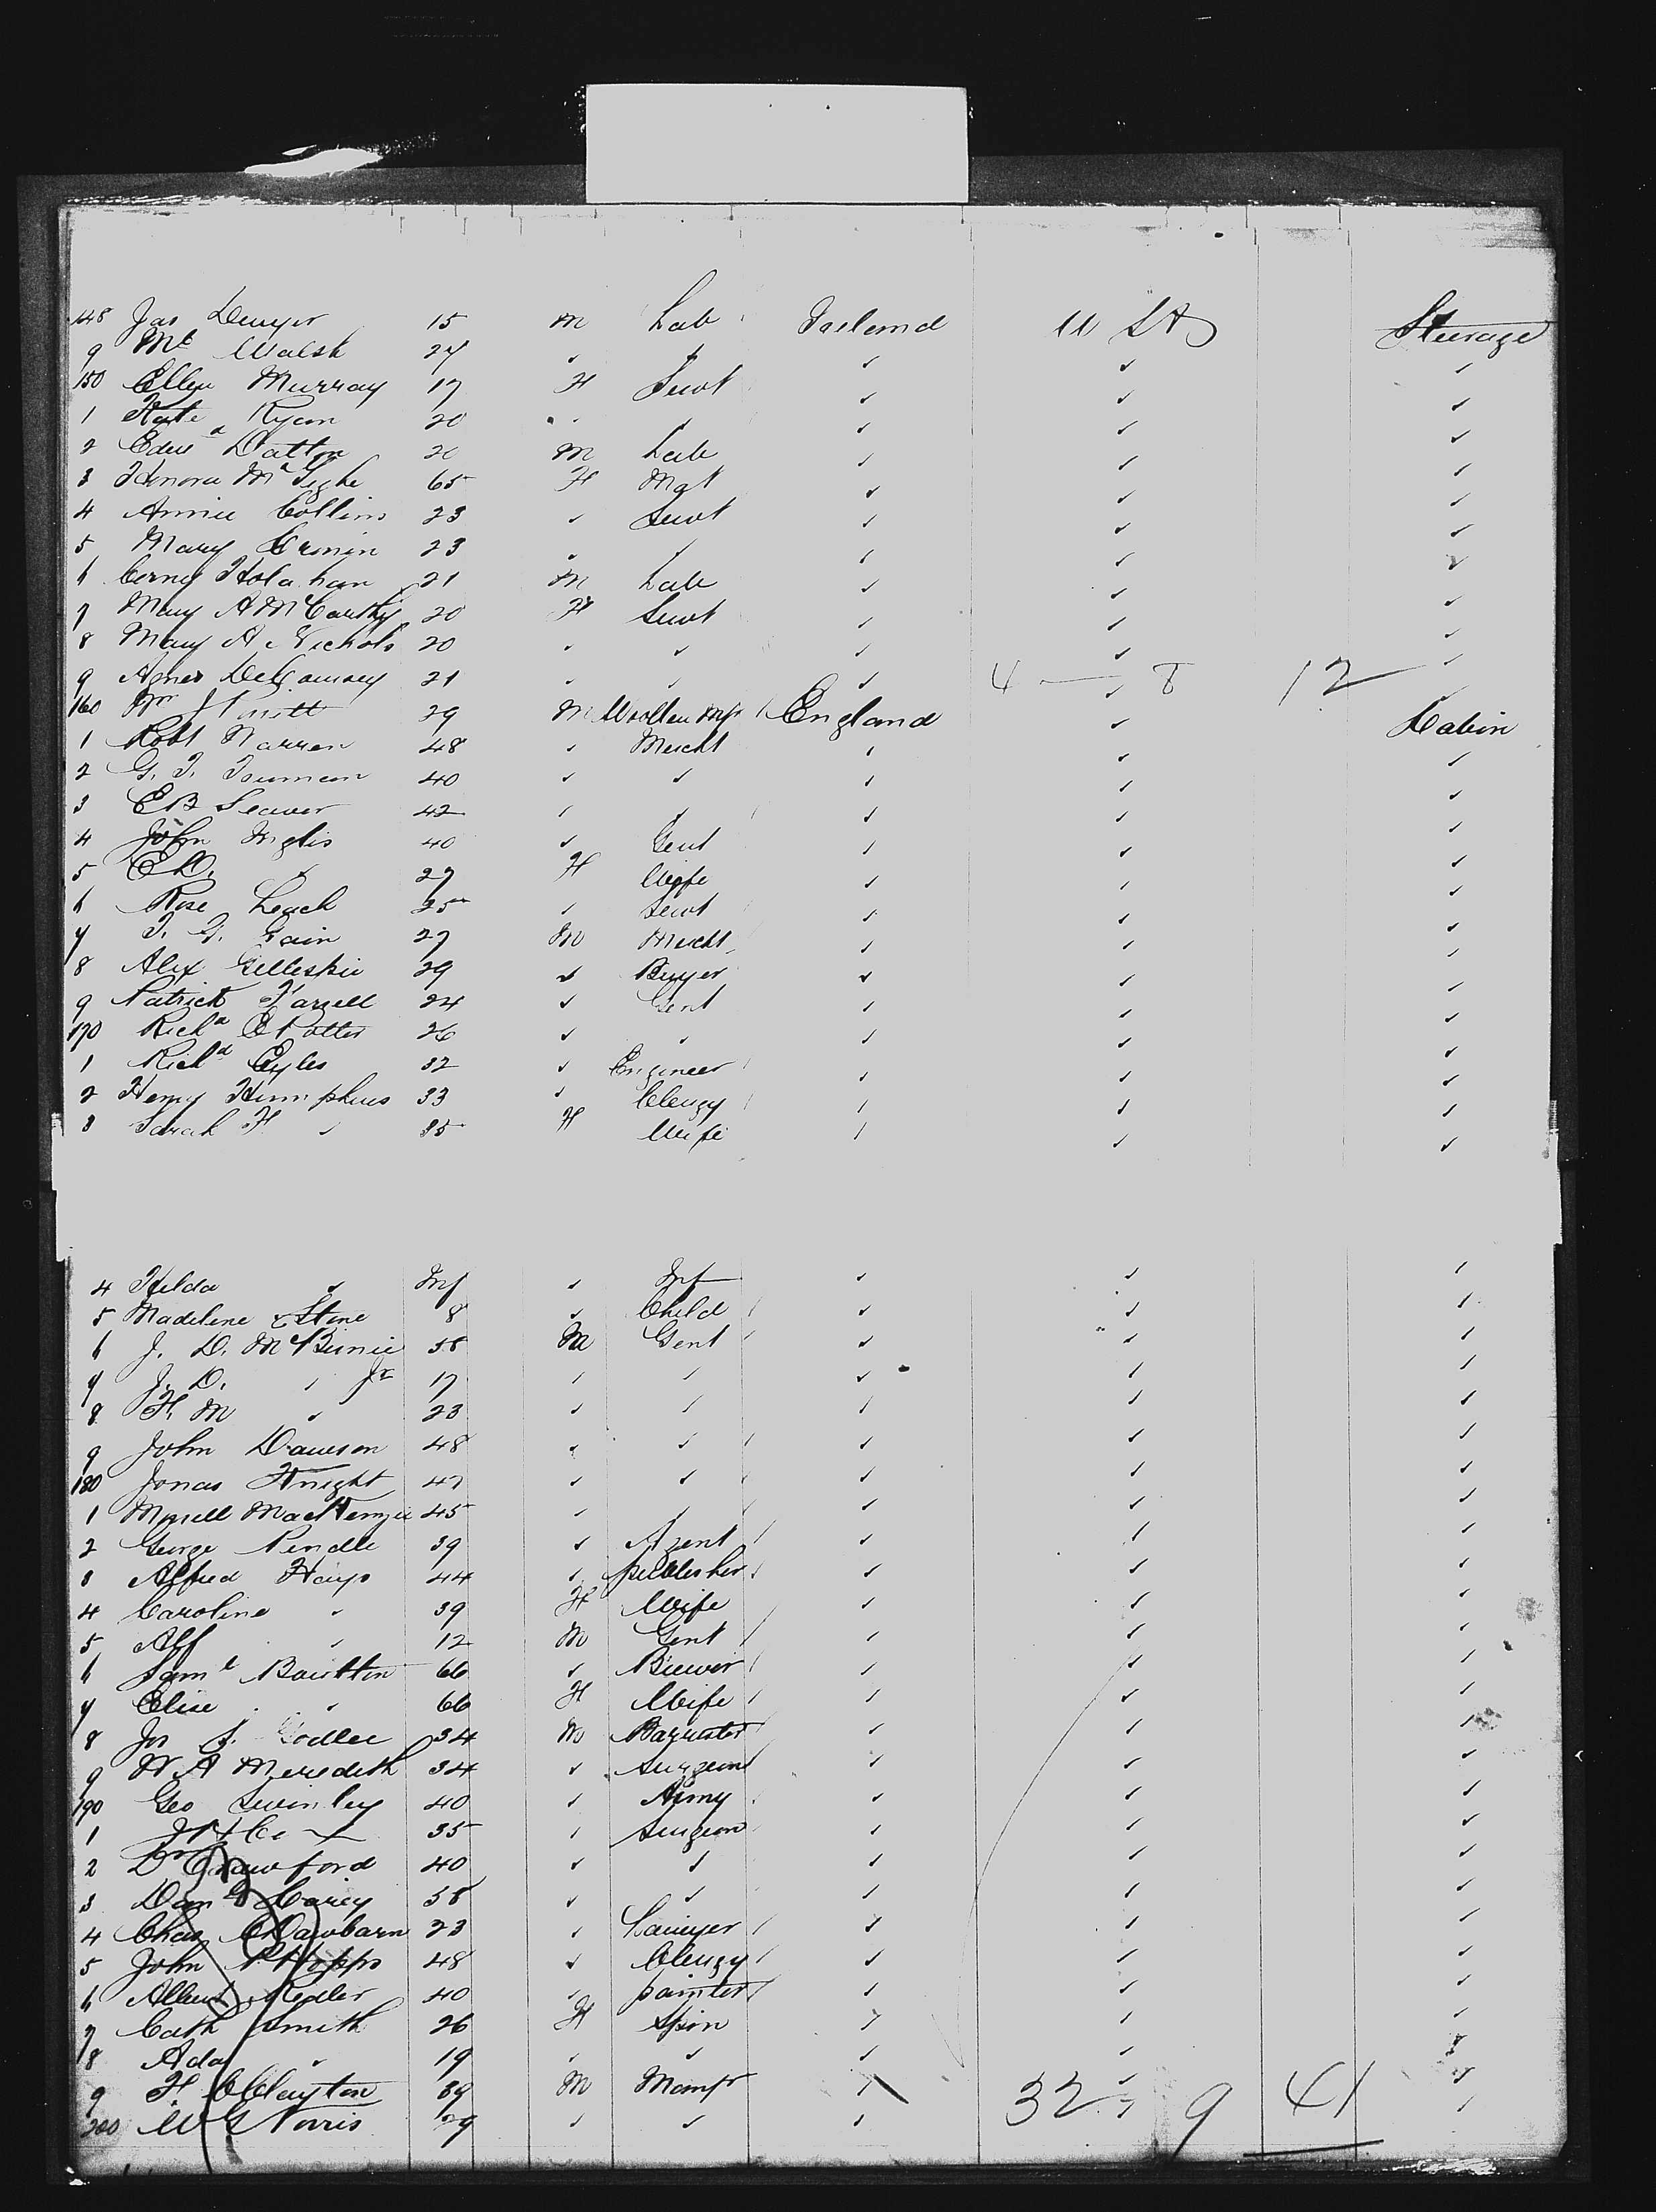 148 Jas Dwyer 15 M Lab Ireland U St Steerage
9 Ml Walsh 24 ✓ ✓ ✓ ✓ ✓
150 Ellen Murray 17 F Servt ✓ ✓ ✓
1 Kate Ryan 20 " ✓ ✓ ✓ ✓
2 Edwd Dalton 20 M Lab ✓ ✓ ✓
3 Honora McTighe 65 F Mat ✓ ✓ ✓
4 Annie Collins 23 ✓ Servt ✓ ✓ ✓
5 Mary Cronin 23 ✓ ✓ ✓ ✓ ✓
6 Corny Holahan 21 M Lab ✓ ✓ ✓
7 Mary A McCarthy 20 F Servt ✓ ✓ ✓
8 Mary A Nichols 20 ✓ ✓ ✓ ✓ ✓
9 Agnes 21 ✓ ✓ ✓ 4 — 8 12 ✓
160 Wm 29 M Woollen Mfr England ✓ Cabin
1 Robt Warren 48 ✓ Mercht ✓ ✓ ✓
2 G. T. 40 ✓ ✓ ✓ ✓ ✓
3 E B Seaver 42 ✓ ✓ ✓ ✓ ✓
4 John Inglis 40 ✓ Gent ✓ ✓ ✓
5 E D. ✓ 27 F Wife ✓ ✓ ✓
6 Rose Leach 25 ✓ Servt ✓ ✓ ✓
7 T. G. Gain 27 M Mercht ✓ ✓ ✓
8 Alex Gillespie 29 ✓ Buyer ✓ ✓ ✓
9 Patrick Farrell 24 ✓ Gent ✓ ✓ ✓
170 Richd E Potter 26 ✓ ✓ ✓ ✓ ✓
1 Richd Eyles 32 ✓ Engineer ✓ ✓ ✓
2 Henry Humphries 33 ✓ Clergy ✓ ✓ ✓
3 Sarah F ✓ 35 F Wife ✓ ✓ ✓
4 Hilda ✓ Inf ✓ Inf ✓ ✓ ✓
5 Madeline Stone 8 ✓ Child ✓ ✓ ✓
6 J. D. McBirnie 58 M Gent ✓ ✓ ✓
7 J. D. ✓ Jr 17 ✓ ✓ ✓ ✓ ✓
8 F. M ✓ 23 ✓ ✓ ✓ ✓ ✓
9 John Dawson 48 ✓ ✓ ✓ ✓ ✓
180 Jonas Knight 47 ✓ ✓ ✓ ✓ ✓
1 Morell MacKenzie 45 ✓ ✓ ✓ ✓ ✓
2 George Pindle 39 ✓ Agent ✓ ✓ ✓
3 Alfred Hays 44 ✓ publisher ✓ ✓ ✓
4 Caroline ✓ 39 F Wife ✓ ✓ ✓
5 Alf ✓ 12 M Gent ✓ ✓ ✓
6 Saml Boulton 66 ✓ Brewer ✓ ✓ ✓
7 Elise ✓ 66 F Wife ✓ ✓ ✓
8 Jos S. Godlee 34 M Barrister ✓ ✓ ✓
9 W A Meredith 34 ✓ Surgeon ✓ ✓ ✓
190 Geo Swinley 40 ✓ Army ✓ ✓ ✓
1 35 ✓ Surgeon ✓ ✓ ✓
2 Dr Crawford 40 ✓ ✓ ✓ ✓ ✓
3 Danl Carey 58 ✓ ✓ ✓ ✓ ✓
4 Chas C Dawbarn 23 ✓ Lawyer ✓ ✓ ✓
5 John P Hopps 48 ✓ Clergy ✓ ✓ ✓
6 Albert Kedler 40 ✓ painter ✓ ✓ ✓
7 Cath Smith 26 F Spin ✓ ✓ ✓
8 Ada ✓ 19 ✓ ✓ ✓ ✓ ✓
9 F. C Clayton 39 M Manfr ✓ ✓ ✓
200 W G Norris 29 ✓ ✓ ✓ 32 ✓ 9 41 ✓